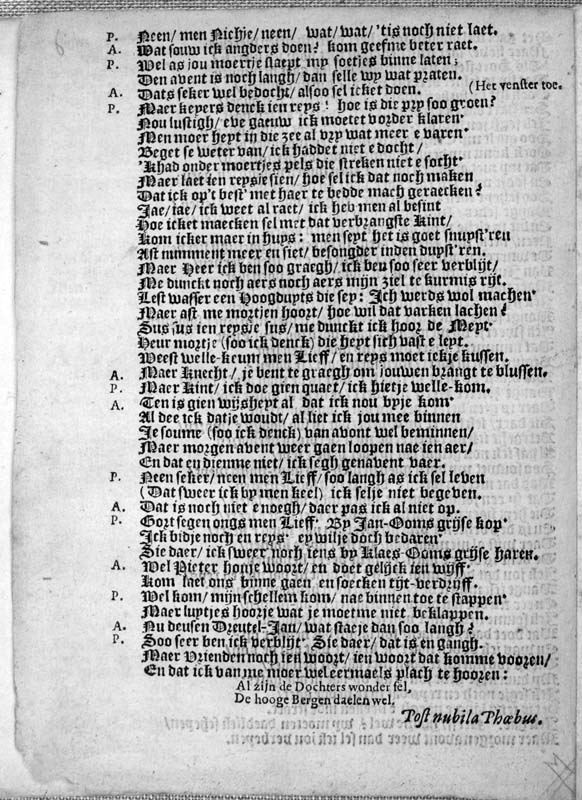 P. Neen/ men Nichje/ neen/ wat/ wat/ 'tis noch niet laet.
A. Wat souw ick angders doen? kom geef me beter raet.
P. Wel as jou moertje slaept my soetjes binne laten;
Den avent is noch langh/ dan selle wy wat praten.
A. Dats seker wel bedocht/ alsoo sel icket doen. (Het venster toe.
P. Maer keyers denck ien reys! hoe is die pry soo groen?
Nou lustigh/ eve gaeuw ick moetet vorder klaren·
Men moer heyt in die zee al vry wat meer e varen·
Beget se weter van/ ick haddet niet e docht/
'Khad onder moertjes pels die streken niet e socht·
Maer laet ien reysje sien/ hoe sel ick dat noch maken
Dat ick op't best' met haer te bedde mach geraecken?
Jae/ iae/ ick weet al raet/ ick heb men al besint
Hoe icket maecken sel met dat verbrangste Kint/
Kom icker maer in huys: men seyt het is goet snuyst'ren
Ast nimment meer en siet/ besongder inden duyst'ren.
Maer Heer ick ben soo graegh/ ick ben soo seer verblijt/
Me dunckt noch aers noch aers mijn ziel te kurmis rijt.
Lest wasser een Hoogduyts die sey: Ich werds wol machen·
Maer ast me mortjen hoort/ hoe wil dat varken lachen?
Sus sus ien reysje sus/ me dunckt ick hoor de Meyt·
Heur mortje (soo ick denck) die heyt sich vast e leyt.
Weest welle-keum men Lieff/ en reys moet ickje kussen.
A. Maer Knecht/ je bent te graegh om jouwen brangt te blussen.
P. Maer Kint/ ick doe gien quaet/ ick hietje welle-kom.
A. Ten is gien wijsheyt al dat ick nou byje kom·
Al dee ick datje woudt/ al liet ick jou mee binnen
Je soume (soo ick denck) van avont wel beminnen/
Maer morgen avent weer gaen loopen nae ien aer/
En dat en dienme niet/ ick segh genavent vaer.
P. Neen seker/ neen men Lieff/ soo langh as ick sel leven
(Dat sweer ick by men keel) ick selje niet begeven.
A. Dat is noch niet e noegh/ daer pas ick al niet op.
P. Gort segen ongs men Lieff· By Jan-Ooms grijse kop·
Ick bidje noch en reys· ey wilje doch bedaren·
Sie daer/ ick sweer noch iens by Klaes-Ooms grijse haren.
A. Wel Pieter honje woort/ en doet gelijck ien wijff·
Kom laet ons binne gaen en soecken tijt-verdrijff.
P. Wel kom/ mijn schellem kom/ nae binnen toe te stappen·
Maer luytjes hoorje wat je moetme niet beklappen.
A. Nu deusen Dreutel-Jan/ wat staeje dan soo langh?
P. Soo seer ben ick verblijt· Sie daer/ dat is en gangh.
Maer Vrienden noch ien woort/ ien woort dat komme vooren/
En dat ick van me moer wel eermaels plach te hooren:
Al zijn de Dochters wonder fel,
De hooge Bergen daelen wel.
Post nubila Phœbus.